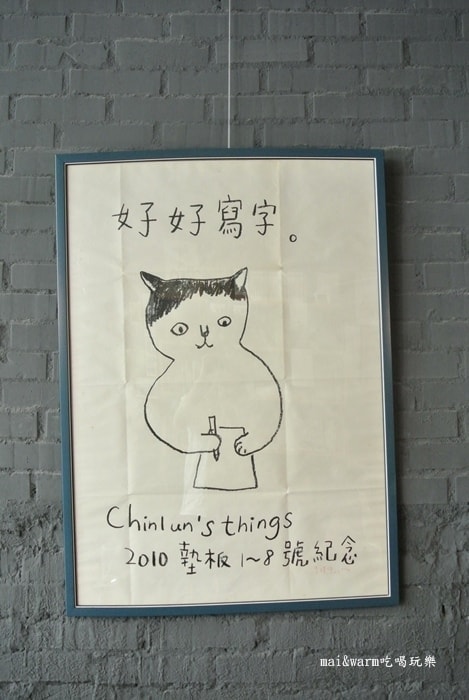 好好寫字。
Chinlun's things
2010 墊板 1~8 號紀念
mai&warm吃喝玩樂